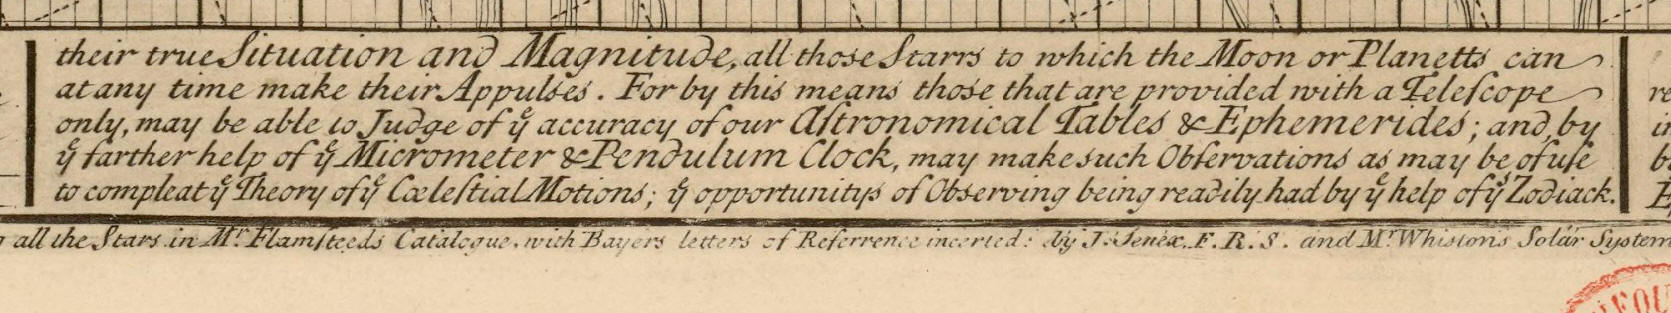 their true Situation and Magnitude, all those Starrs to which the Moon or Planetts can
at any time make their Appulses. For by this means those that are provided with a Teleſcope
only, may be able to Judge of yͤ accuracy of our Aſtronomical Tables & Ephemerides; and, by
yͤ farther help of yͤ Micrometer & Pendulum Clock, may make such Obſervations as may be of uſe
to compleat yͤ Theory of yͤ Cœleſtial Motions; yͤ opportunitys of Observing being readily had by yͤ help of yˢ Zodiack.
all the Stars in Mʳ Flamſteeds Catalogue, with Bayers letters of Referrence incerted: by J. Senex. F. R. S. and Mʳ Whistons Solar System